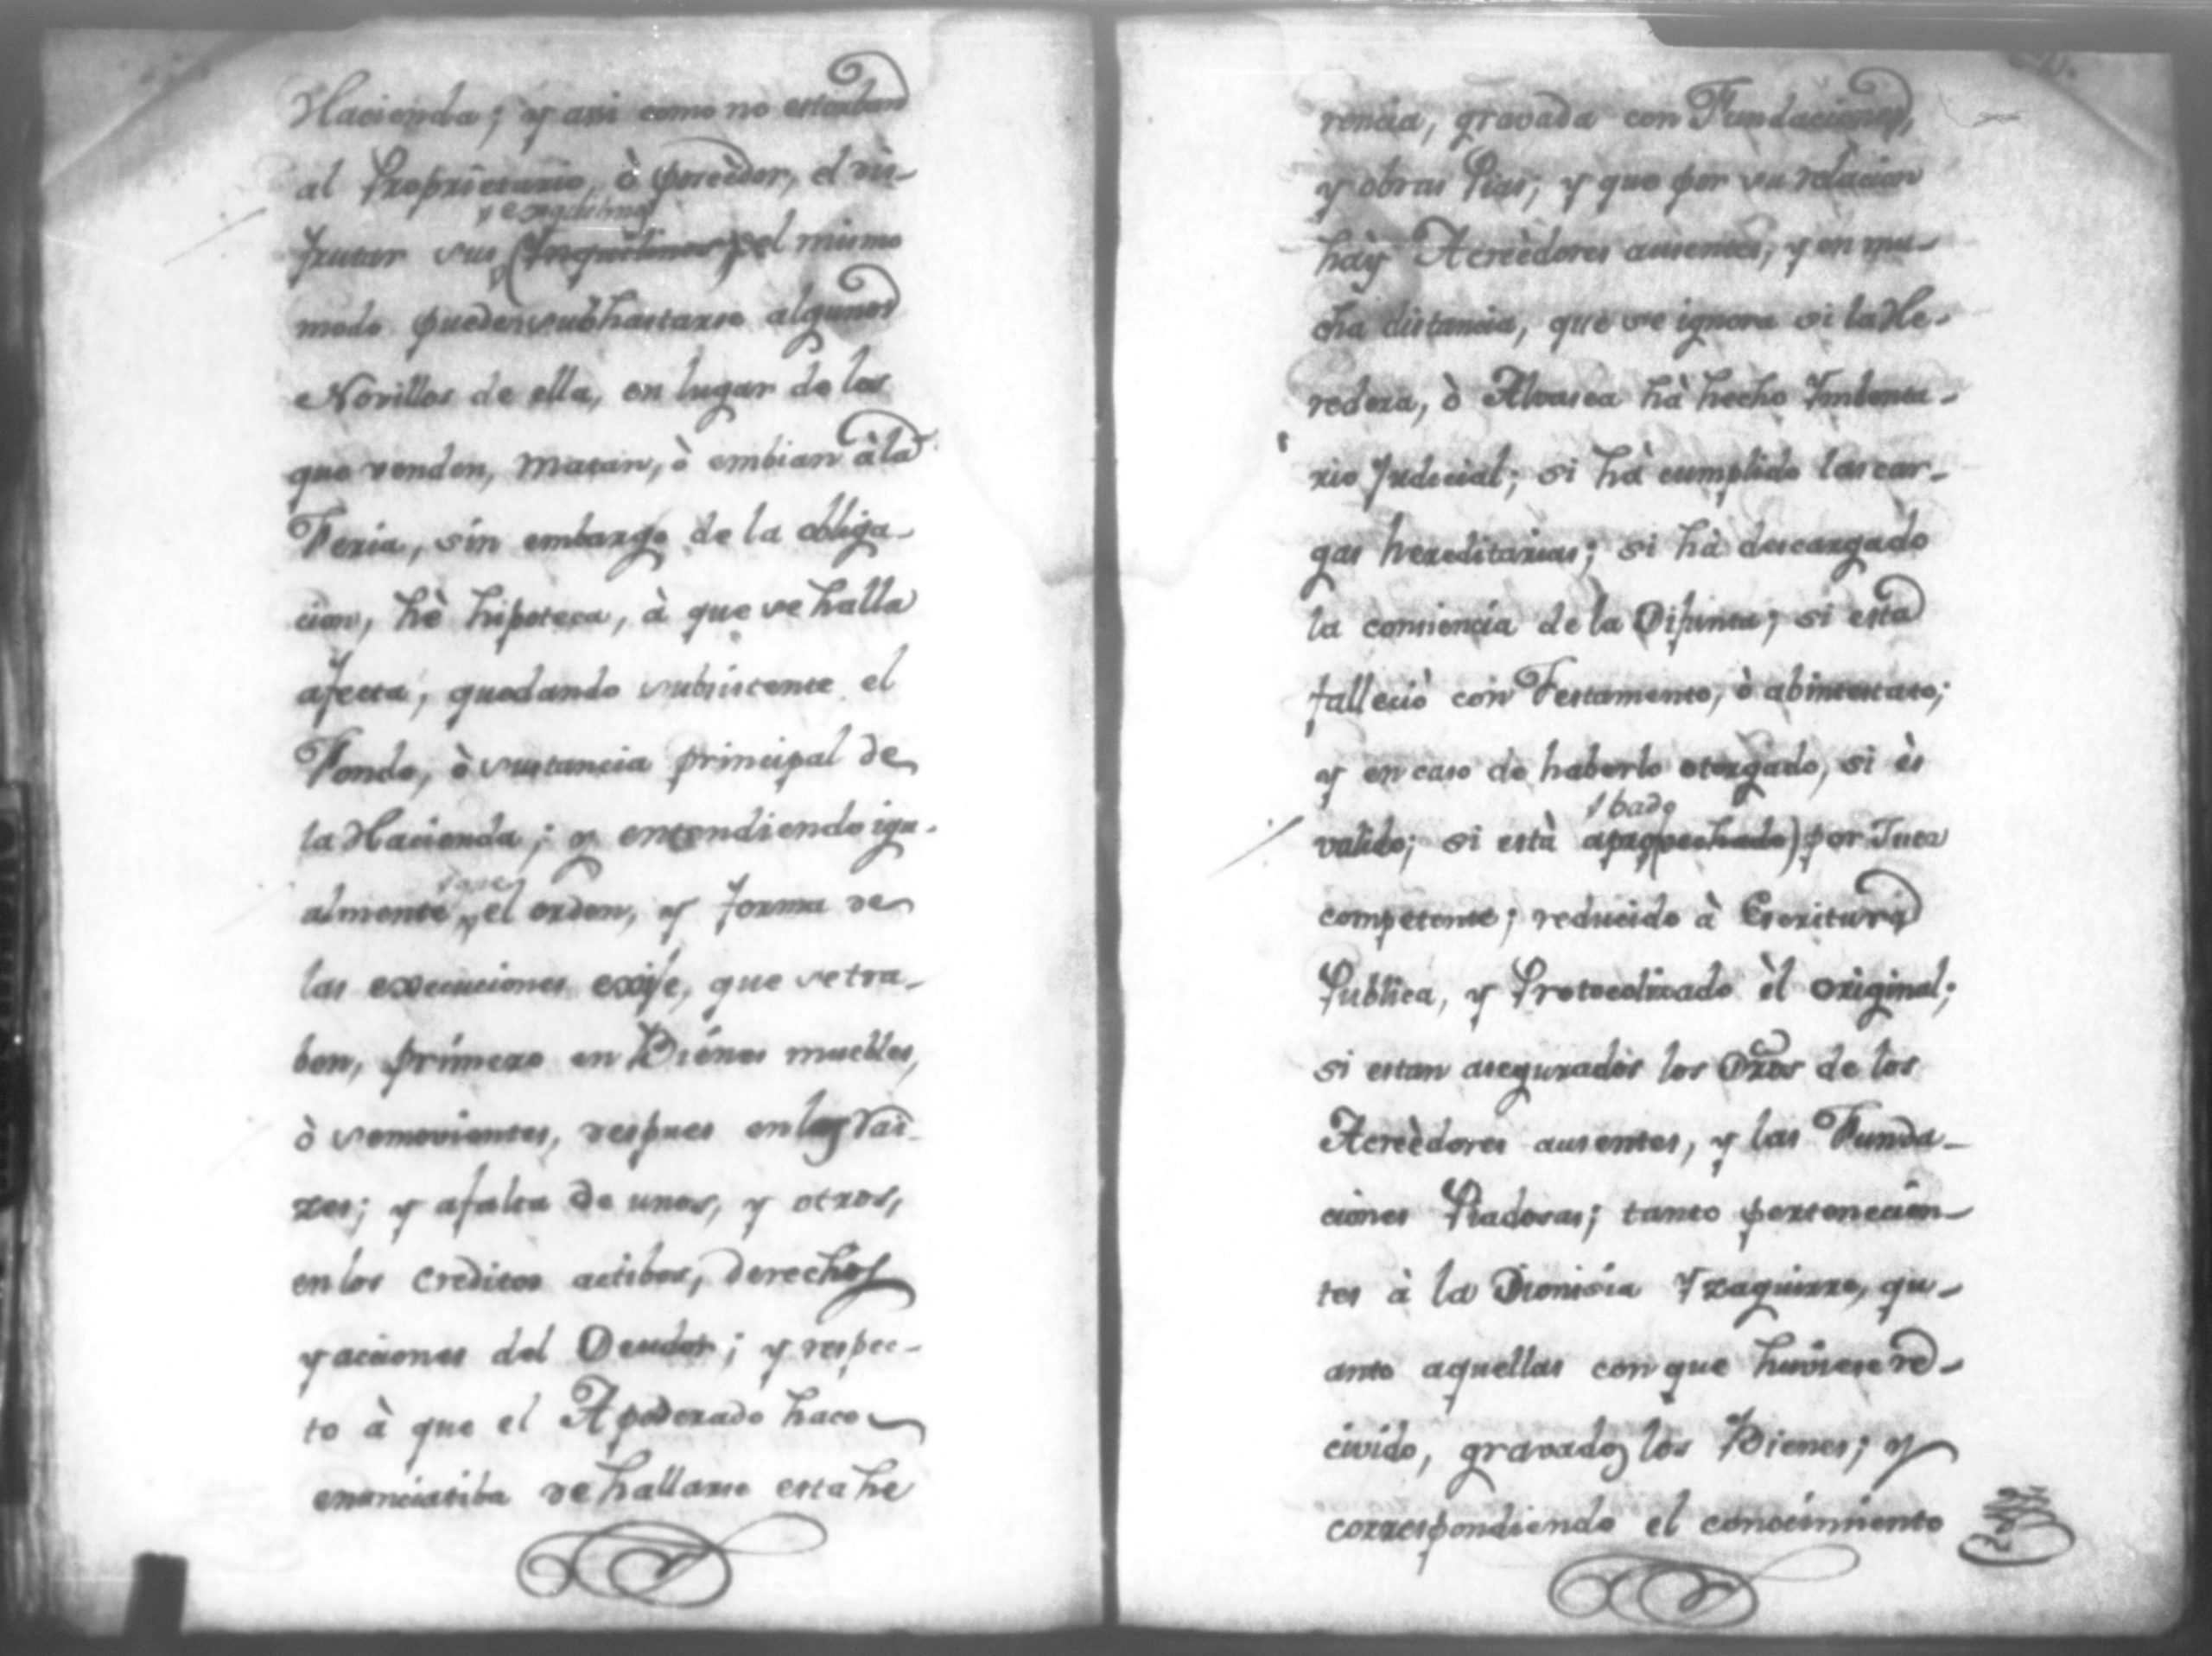 Hacienda; y asi como no estorban
al Proprietario, ò poseèdor, el dis-
frutar sus (Inquilinos) el mismo
modo pueden subhastarse algunos
Novillos de ella, en lugar de los
que venden, matan, ò embian à la
Feria, sin embargo de la obliga-
cion, hè hipoteca, à que se halla
afecta, quedando subsistente el
Fondo, ò sustancia principal de
la Hacienda; y entendiendo igu-
almente, el orden, y forma de
las execuciones exije, que se tra-
ben, primero en Bienes muebles,
ò semovientes, despues en los rai-
zes; y afalta de unos, y otros,
en los creditos actibos, derechos
y aciones del Deudor; y respec-
to à que el Apoderado hace
enunciatiba de hallarse esta he
rencia, gravada con Fundaciones,
y obras Pias; y que por su relacion
hày Acreèdores ausentes, y en mu-
cha distancia, que se ignora si la He-
redera, ò Alvasea hà hecho Imbenta-
rio Judicial; si hà cumplido las car-
gas hereditarias; si hà descargado
la conciencia de la Difunta; si esta
falleciò con Testamento, ò abintestato;
y en caso de haberlo otorgado, si ès
bado
valido; si està apro(vechado) por Juez
competente; reducido à Escritura
Publica, y Protocolizado èl original;
si estan asegurados los Dros de los
Acreèdores ausentes, y las Funda-
ciones Piadosas; tanto pertenecien-
tes à la Dionisia Yzaguirre, qu-
anto aquellas con que huviese re-
civido, gravados los Bienes; y
correspondiendo el conocimiento